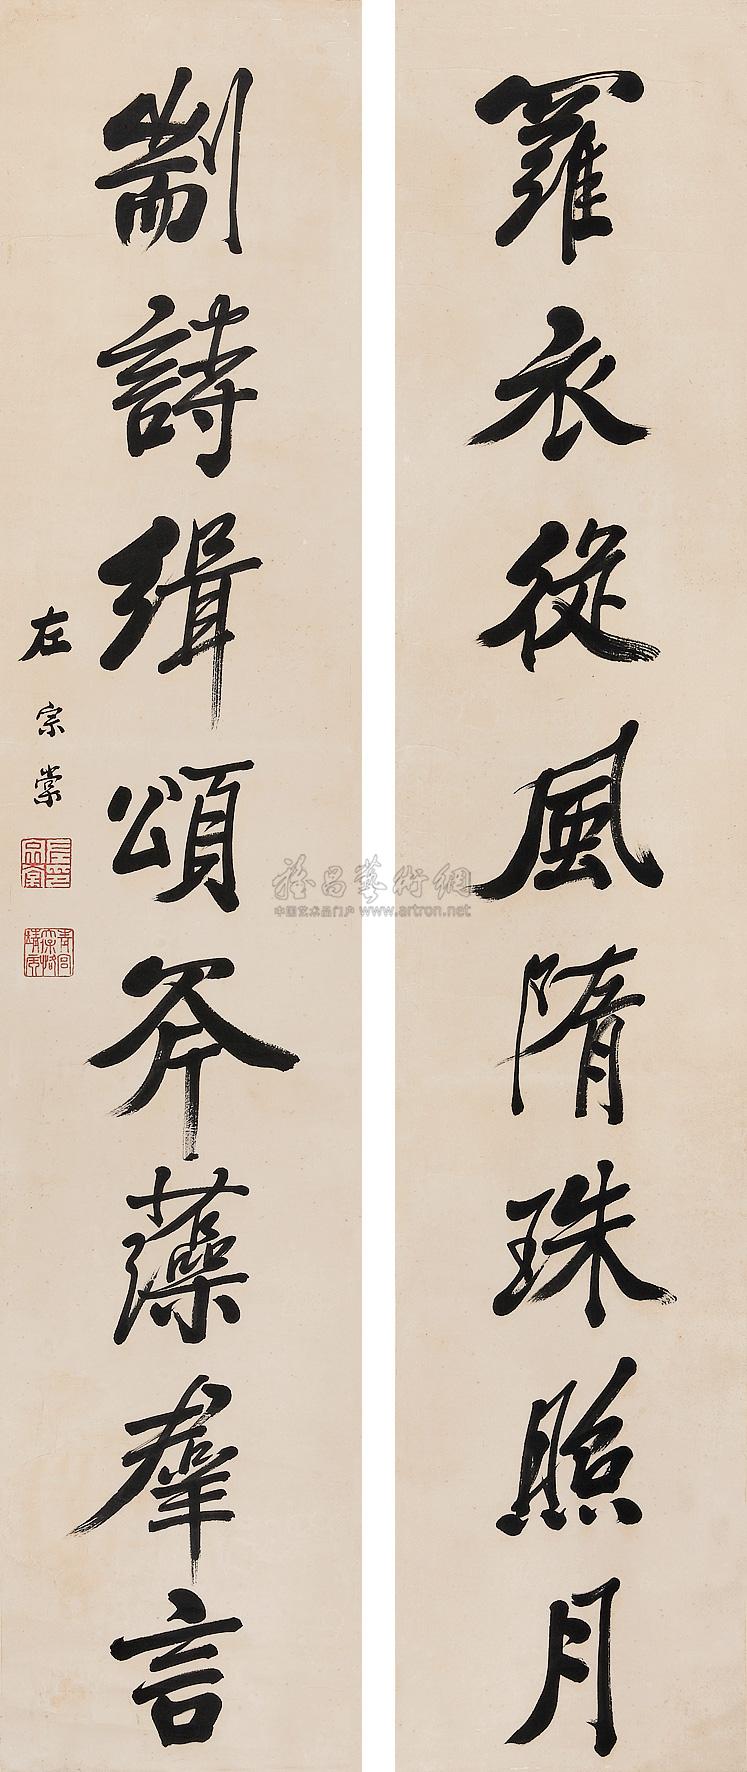 羅衣從風隋珠照月
剬詩緝頌斧藻羣言
左宗棠
雅昌藝術網
中国艺术品门户 www.artron.net